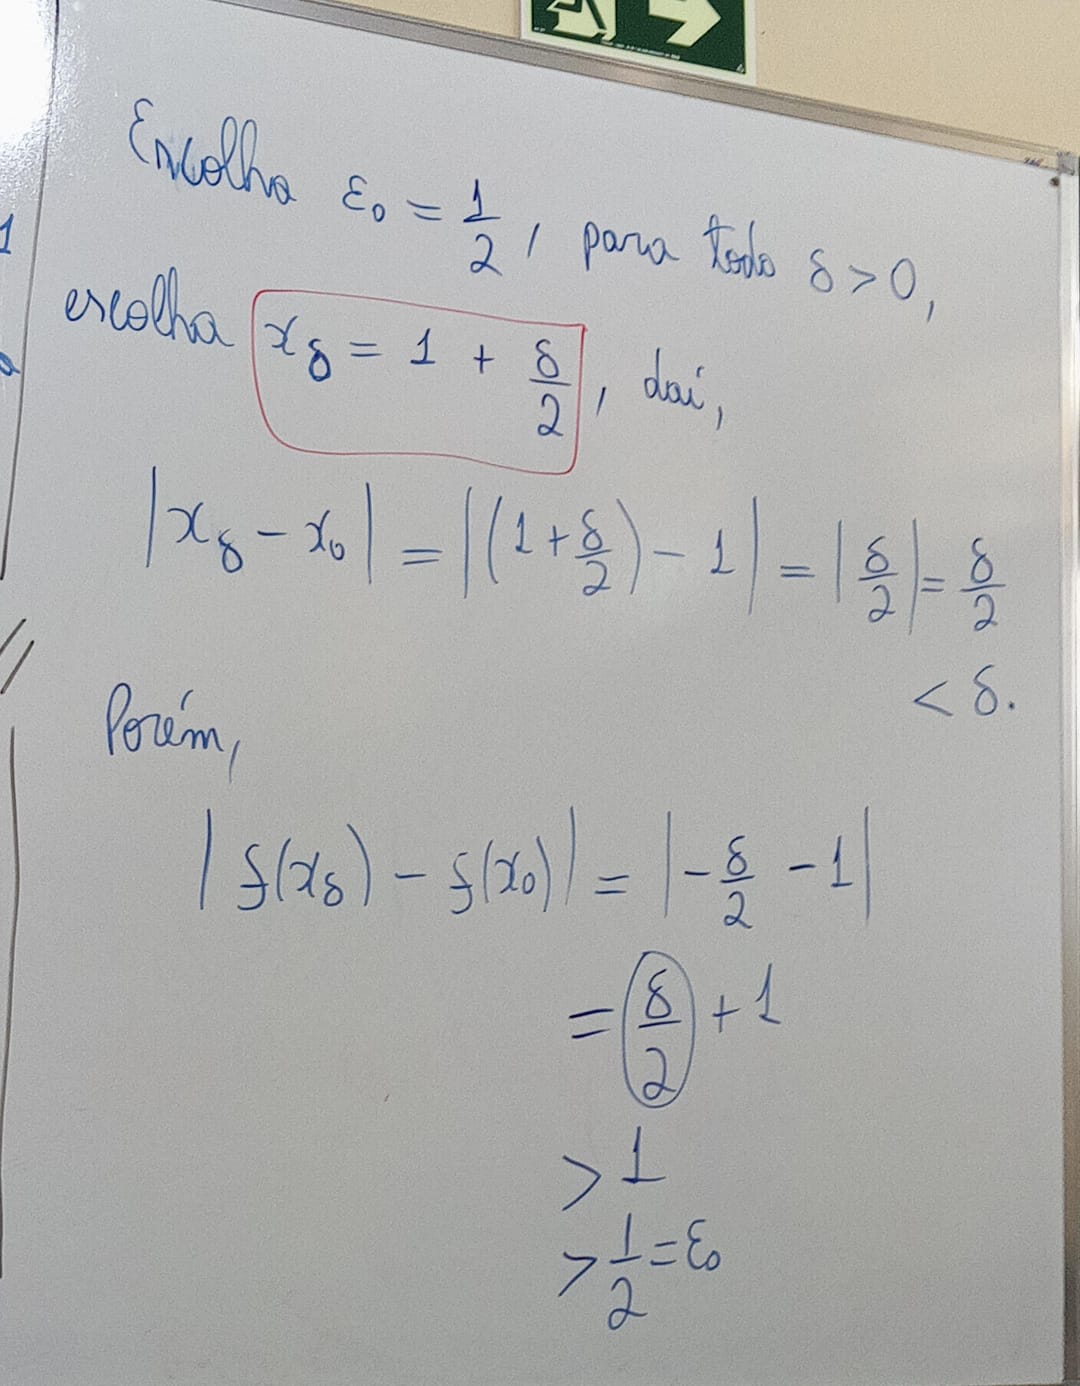 Escolha ε₀ = 1/2, para todo δ > 0,
escolha x_δ = 1 + δ/2, daí,
|x_δ - x₀| = |(1 + δ/2) - 1| = |δ/2| = δ/2
< δ.
Porém,
|f(x_δ) - f(x₀)| = |-δ/2 - 1|
= δ/2 + 1
> 1
> 1/2 = ε₀
1